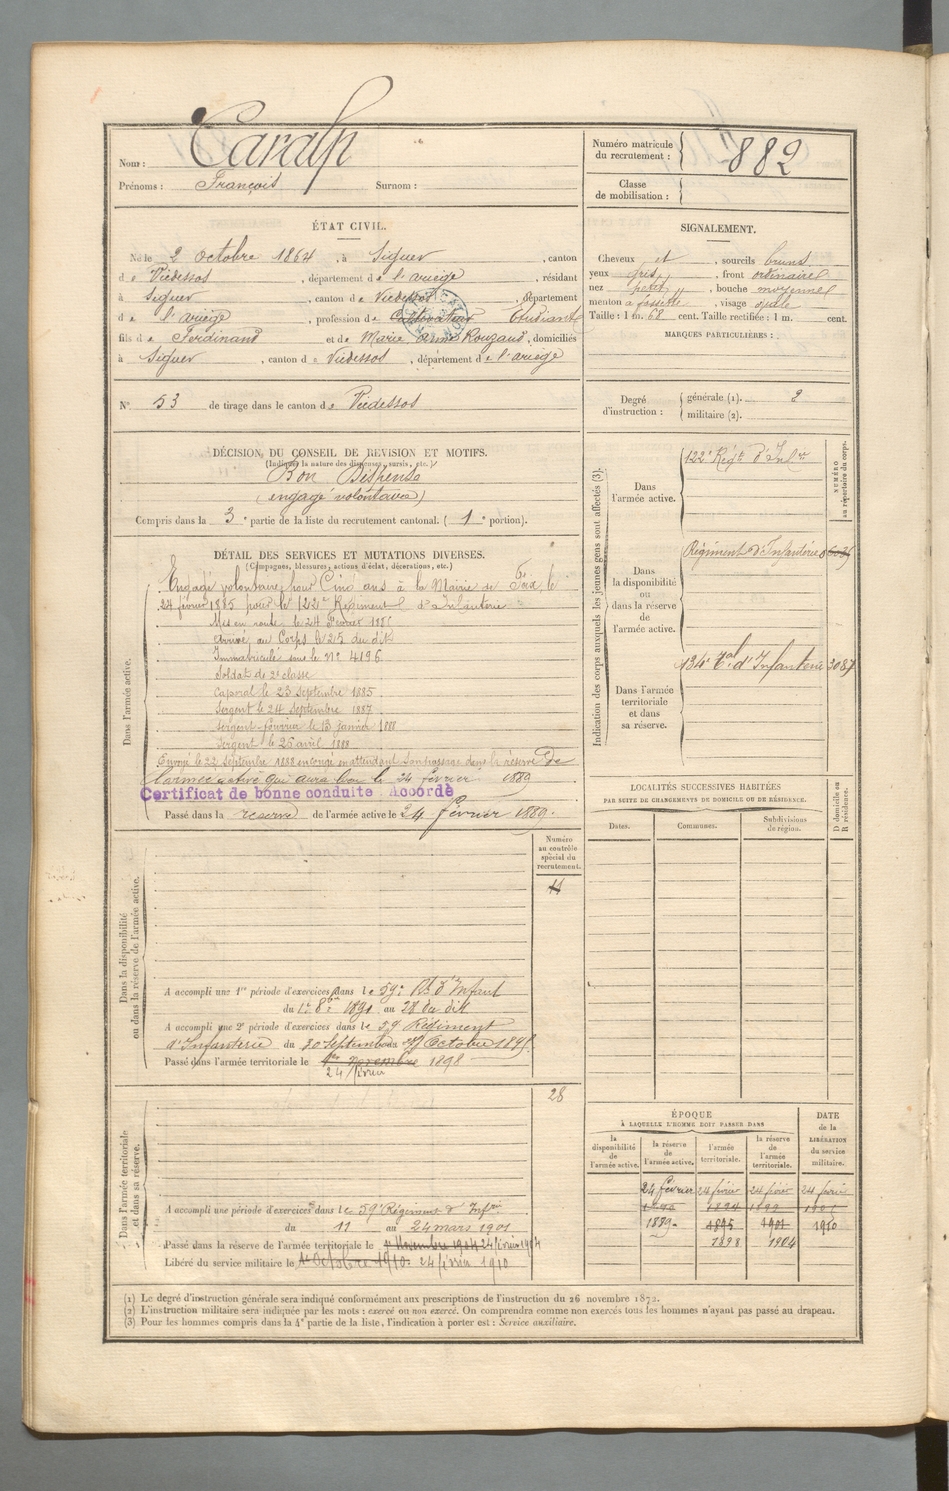 Nom : Caralp
Prénoms : François Surnom :
Numéro matricule du recrutement : 882
Classe de mobilisation :
ÉTAT CIVIL.
Né le 2 octobre 1864, à Siguer, canton
de Vicdessos, département de l'ariège, résidant
à Siguer, canton de Vicdessos, département
de l'ariège, profession de Cultivateur Etudiant
fils de Ferdinand et de Marie Rouzaud, domiciliés
à Siguer, canton de Vicdessos, département de l'ariège
N° 53 de tirage dans le canton de Vicdessos
SIGNALEMENT.
Cheveux et, sourcils bruns
yeux gris, front ordinaire
nez petit, bouche moyenne
menton à fossette, visage ovale
Taille : 1 m. 68 cent. Taille rectifiée : 1 m. cent.
MARQUES PARTICULIÈRES :
Degré d'instruction : générale (1).
militaire (2).
DÉCISION DU CONSEIL DE REVISION ET MOTIFS.
(Indiquer la nature des dispenses, sursis, etc.)
Bon Dispensé
(engagé volontaire)
Compris dans la 3e partie de la liste du recrutement cantonal. (1e portion).
DÉTAIL DES SERVICES ET MUTATIONS DIVERSES.
(Campagnes, blessures, actions d'éclat, décorations, etc.)
Dans l'armée active.
Engagé volontaire pour Cinq ans à la Mairie de Foix le
24 février 1885 pour le 122e Régiment d'Infanterie
Mis en route le 24 février 1885
Arrivé au Corps le 25 du dit
Immatriculé sous le N° 4196
Soldat de 2e classe
Caporal le 23 Septembre 1885
Sergent le 24 Septembre 1887
Sergent-fourrier le 13 Janvier 1888
Sergent le 25 avril 1888
Envoyé le 22 Septembre 1888 en congé en attendant son passage dans la réserve de
l'armée active qui aura lieu le 24 février 1889
Certificat de bonne conduite Accordé
Passé dans la réserve de l'armée active le 24 février 1889.
Numéro au contrôle spécial du recrutement.
Dans la disponibilité ou dans la réserve de l'armée active.
A accompli une 1re période d'exercices dans le 59e Rt d'Infant
du 1er 8bre 1891 au 28 du dit
A accompli une 2e période d'exercices dans le 59 Régiment
d'Infanterie du 30 Septembre au 27 Octobre 1895
Passé dans l'armée territoriale le 1er novembre 1898
24 février
28
Dans l'armée territoriale et dans sa réserve.
A accompli une période d'exercices dans le 59 Régiment d'Infrie
du 11 au 24 mars 1901
Passé dans la réserve de l'armée territoriale le 1er Novembre 1904 24 février 1904
Libéré du service militaire le 1er Octobre 1910. 24 février 1910
Indication des corps auxquels les jeunes gens sont affectés (3).
NUMÉRO au répertoire du corps.
Dans l'armée active.
122e Régt d'Infrie
Dans la disponibilité ou dans la réserve de l'armée active.
Régiment d'Infanterie
Dans l'armée territoriale et dans sa réserve.
134e Tal d'Infanterie 3087
LOCALITÉS SUCCESSIVES HABITÉES
PAR SUITE DE CHANGEMENTS DE DOMICILE OU DE RÉSIDENCE.
Dates. Communes. Subdivisions de région. D domicile ou R résidence.
ÉPOQUE
À LAQUELLE L'HOMME DOIT PASSER DANS
DATE de la LIBÉRATION du service militaire.
la disponibilité de l'armée active. la réserve de l'armée active. l'armée territoriale. la réserve de l'armée territoriale.
24 février 24 février 24 février 24 février
1889 1895 1901 1910
1898 1904
(1) Le degré d'instruction générale sera indiqué conformément aux prescriptions de l'instruction du 26 novembre 1872.
(2) L'instruction militaire sera indiquée par les mots : exercé ou non exercé. On comprendra comme non exercés tous les hommes n'ayant pas passé au drapeau.
(3) Pour les hommes compris dans la 4e partie de la liste, l'indication à porter est : Service auxiliaire.